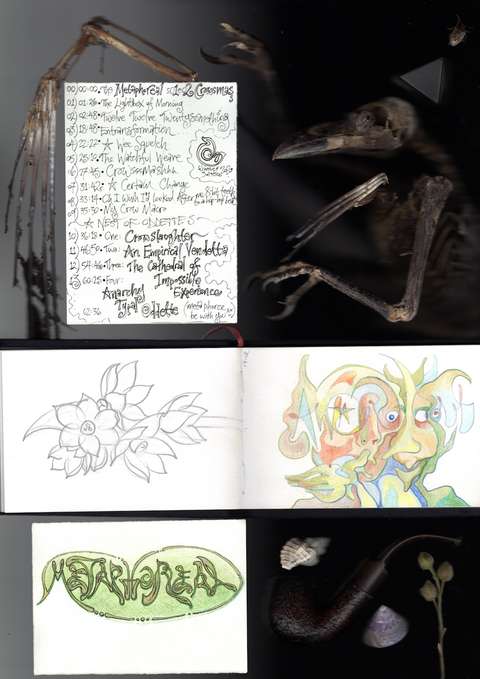 00) 00:00 • The Metaphoreal 12 Crowsmas
01) 01:26 • The Lightbox of Morning
02) 02:48 • Twelve Twelve Twentysomething
03) 18:48 • Entransformation
04) 22:22 • ☆ Wee Squelch
05) 25:12 • The Watchful Weave
06) 27:45 • Crowssmashhh
07) 31:42 • ☆ Certain Change
08) 33:14 • Oh I Wish I'd Looked After Me
09) 35:30 • My Crow Micro
☆ NEST OF ODDETTES
10) 36:18 • One: Crowslaughter
11) 46:50 • Two: An Empirical Vendetta
12) 54:46 • Three: The Cathedral of Impossible Experience
60:25 • Four: Anarchy
Tidal Oddette
62:36
(metaphorce be with you)
METAPHOREAL